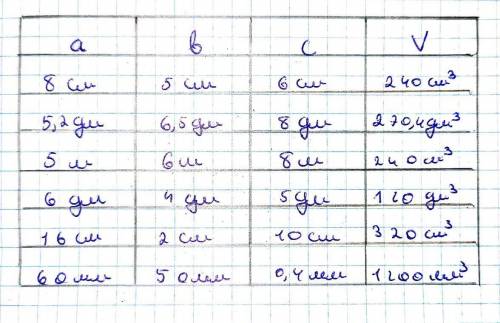 a в c V
8 см 5 см 6 см 240 см³
5,2 дм 6,5 дм 8 дм 270,4 дм³
5 м 6 м 8 м 240 м³
6 дм 4 дм 5 дм 120 дм³
16 см 2 см 10 см 320 см³
60 мм 50 мм 0,4 мм 1200 мм³